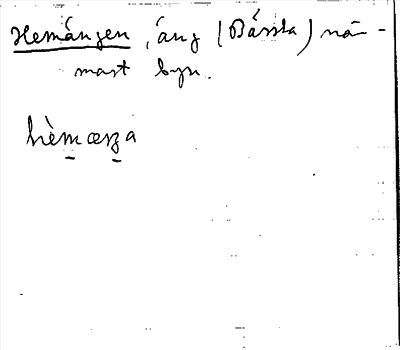 Hemängen, äng (Bássta) nä-
mast byn.
hèmæŋa